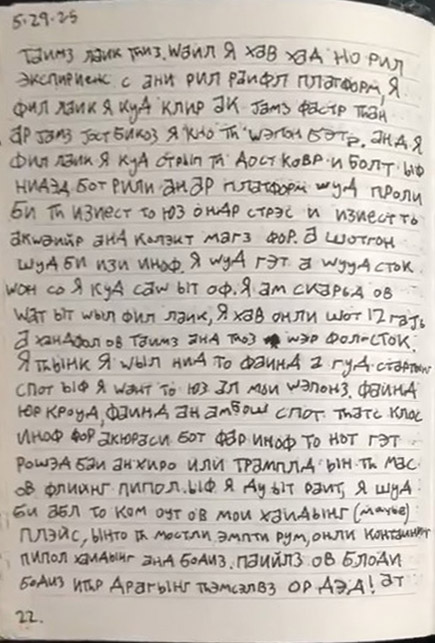 5-29-25
Таимз лаик тhиз. Waил Я хав хаД но рил
экспириенс с ани рил раифл платформ, Я
фил лаик Я куД клир ак Јамз фастр тhан
ар Јамз Јост бикоз Я кно тh wэпон бэтр. анД Я
фил лаик Я куД
ниДэД бот рили ан ар платформ шуД проли
би тh изиест то юз онДр стрэс и изиест то
анД магз фор. а шотгон
шуД би изи иноф. Я wуД гэт а wууД сток
wон со Я куД саw ыт оф. Я ам скарьД ов
wат ыт wыл фил лаик, Я хав онли шот 12 гаЈь
а ханДфол ов таимз анД тhоз wэр фол-сток.
Я тhынк Я wыл ниД то фаинД а гуД стартинг
спот ыф Я wант то юз ал мои wэпонз. фаинД
юр кроуД, фаинД ан амбош спот. тhатс клос
иноф фор акюраси бот фар иноф то нот гэт
рошэД баи ан хиро или трамплД ын тh мас
ов флиинг пипол. ыф Я Ду ыт раит, Я шуД
би абл то ком оут ов мои хаиДынг (маубе)
плэйс, ынто тh мостли эмпти рум, онли контаининг
пипол хаиДынг анД боДиз. паийлз ов блоДи
боДиз итhр Драгынг тhэмсэлвз ор ДэД! ат
22.